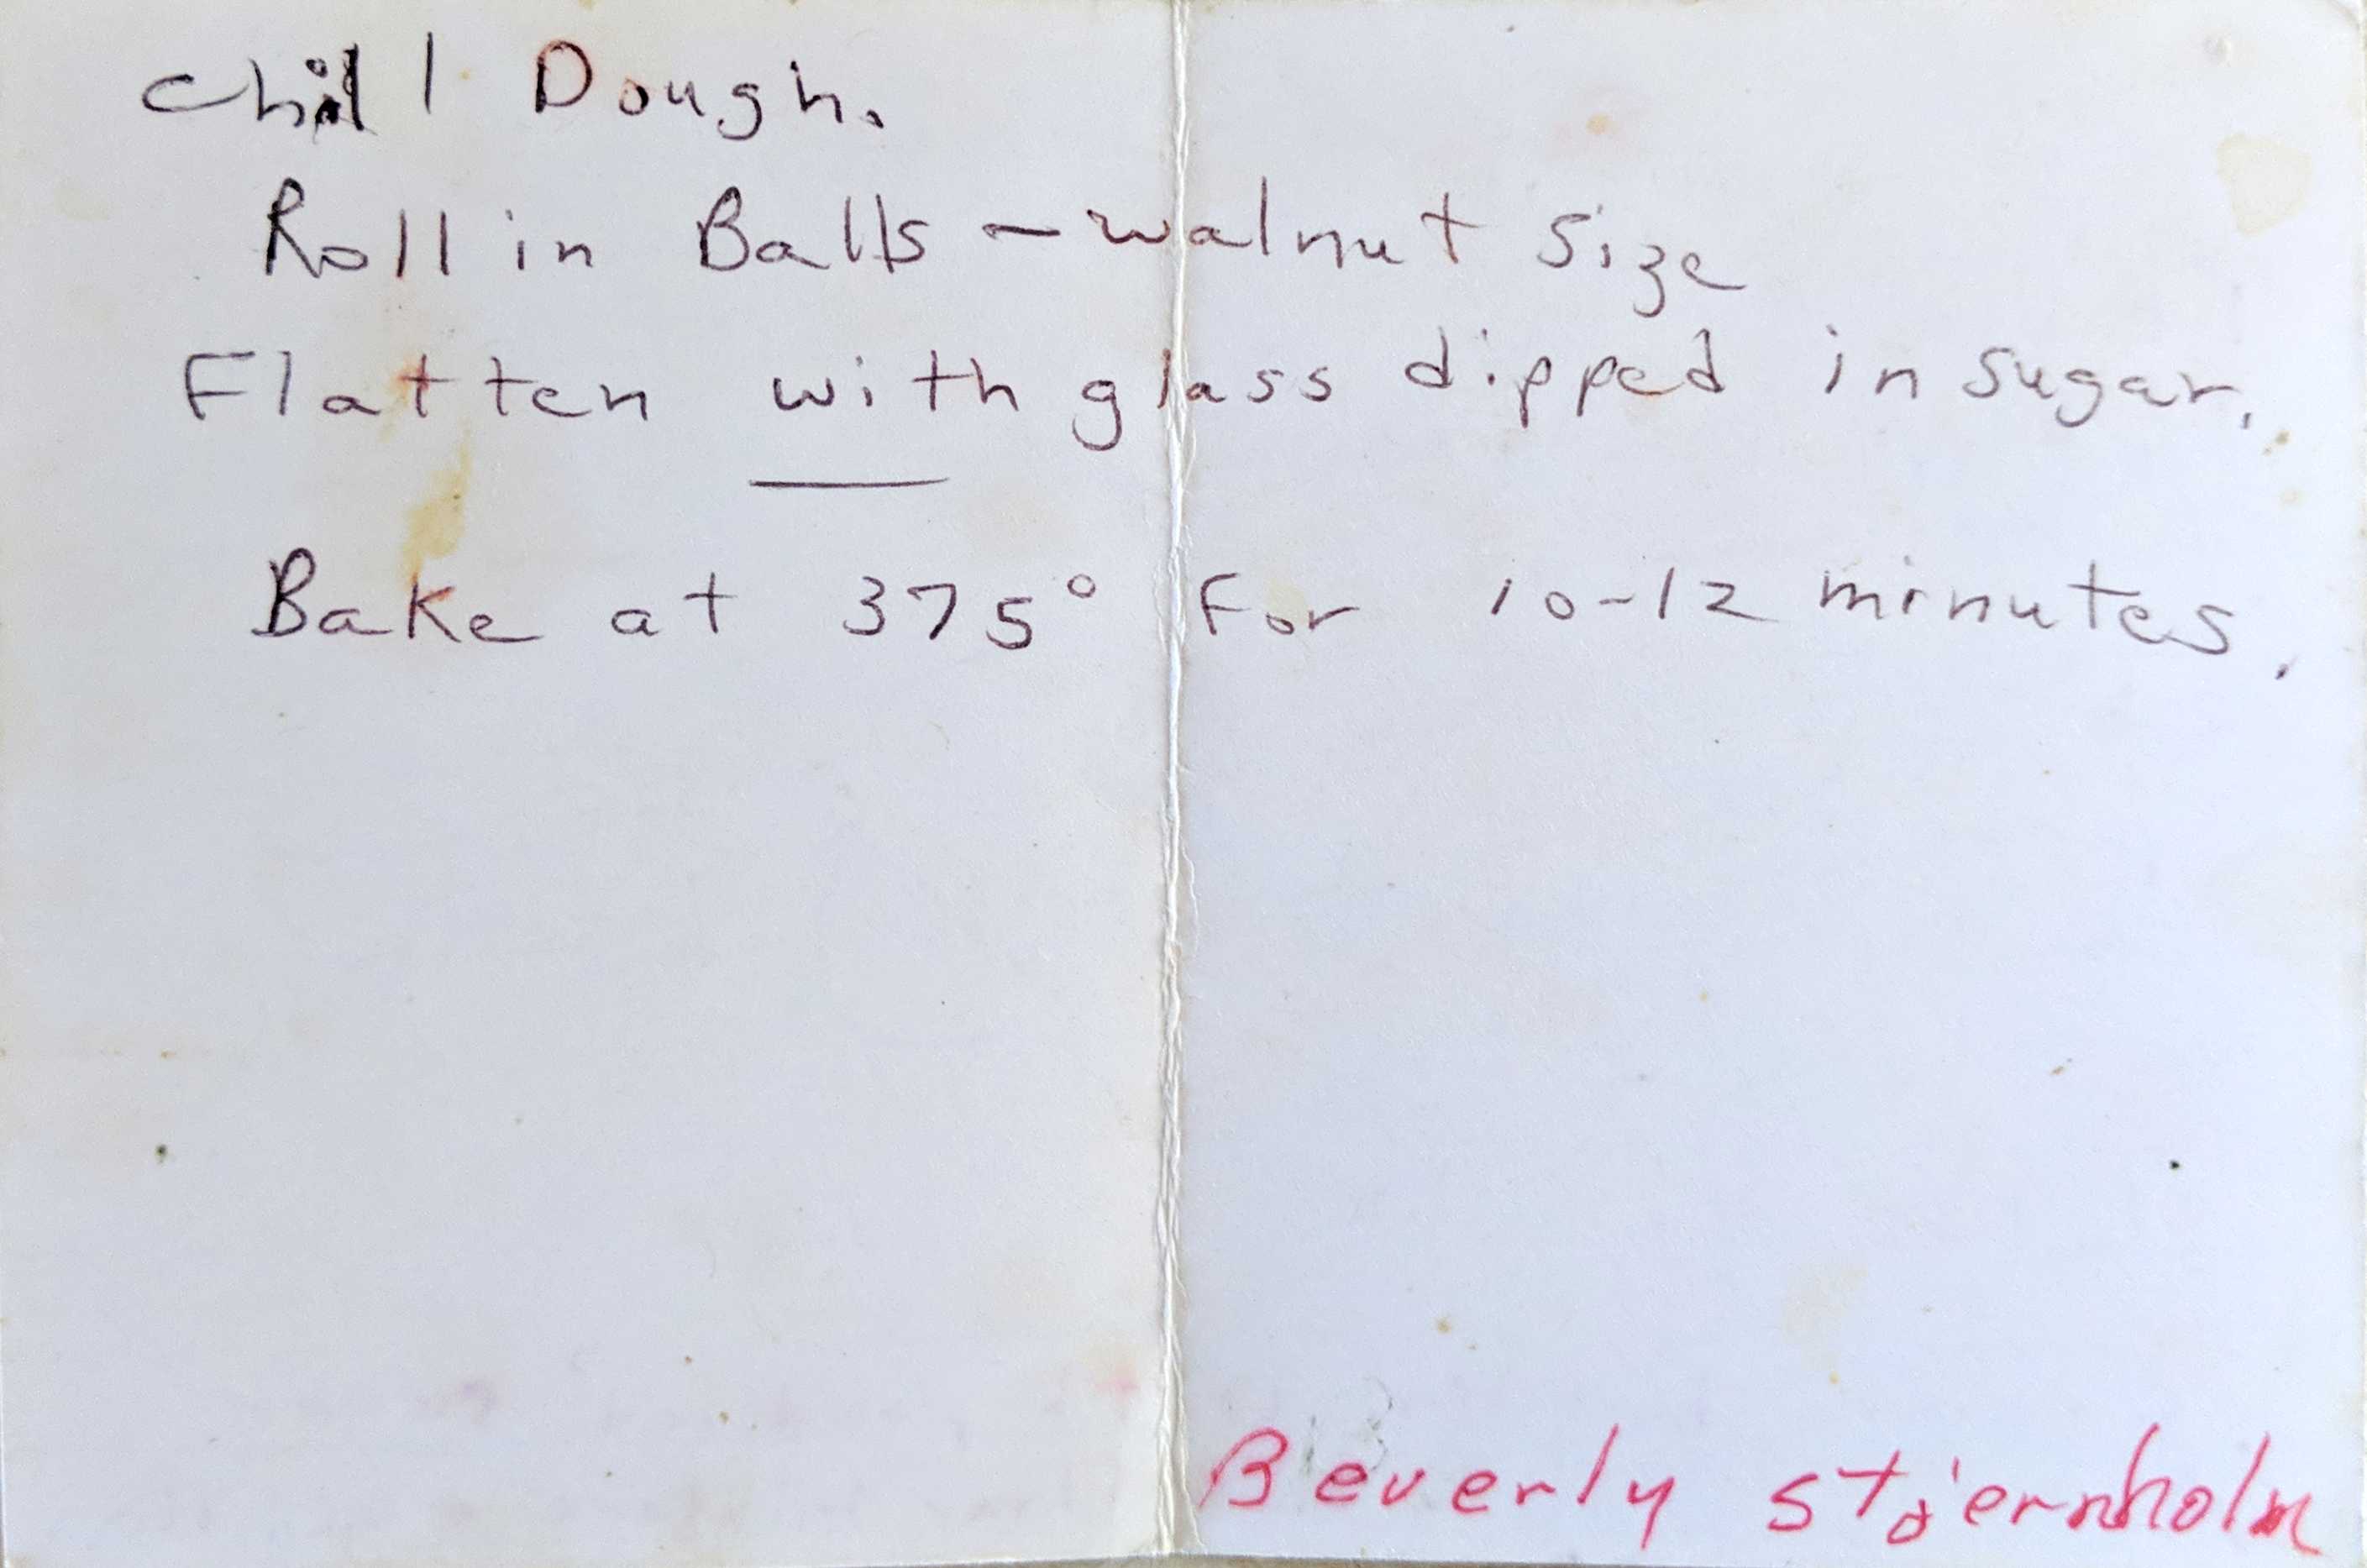 Chill Dough.
Roll in Balls - walnut size
Flatten with glass dipped in sugar.
Bake at 375° For 10-12 minutes.
Beverly Stjernholm